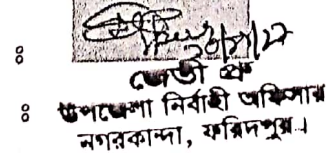 জেতী প্রু
উপজেলা নির্বাহী অফিসার
নগরকান্দা, ফরিদপুর।